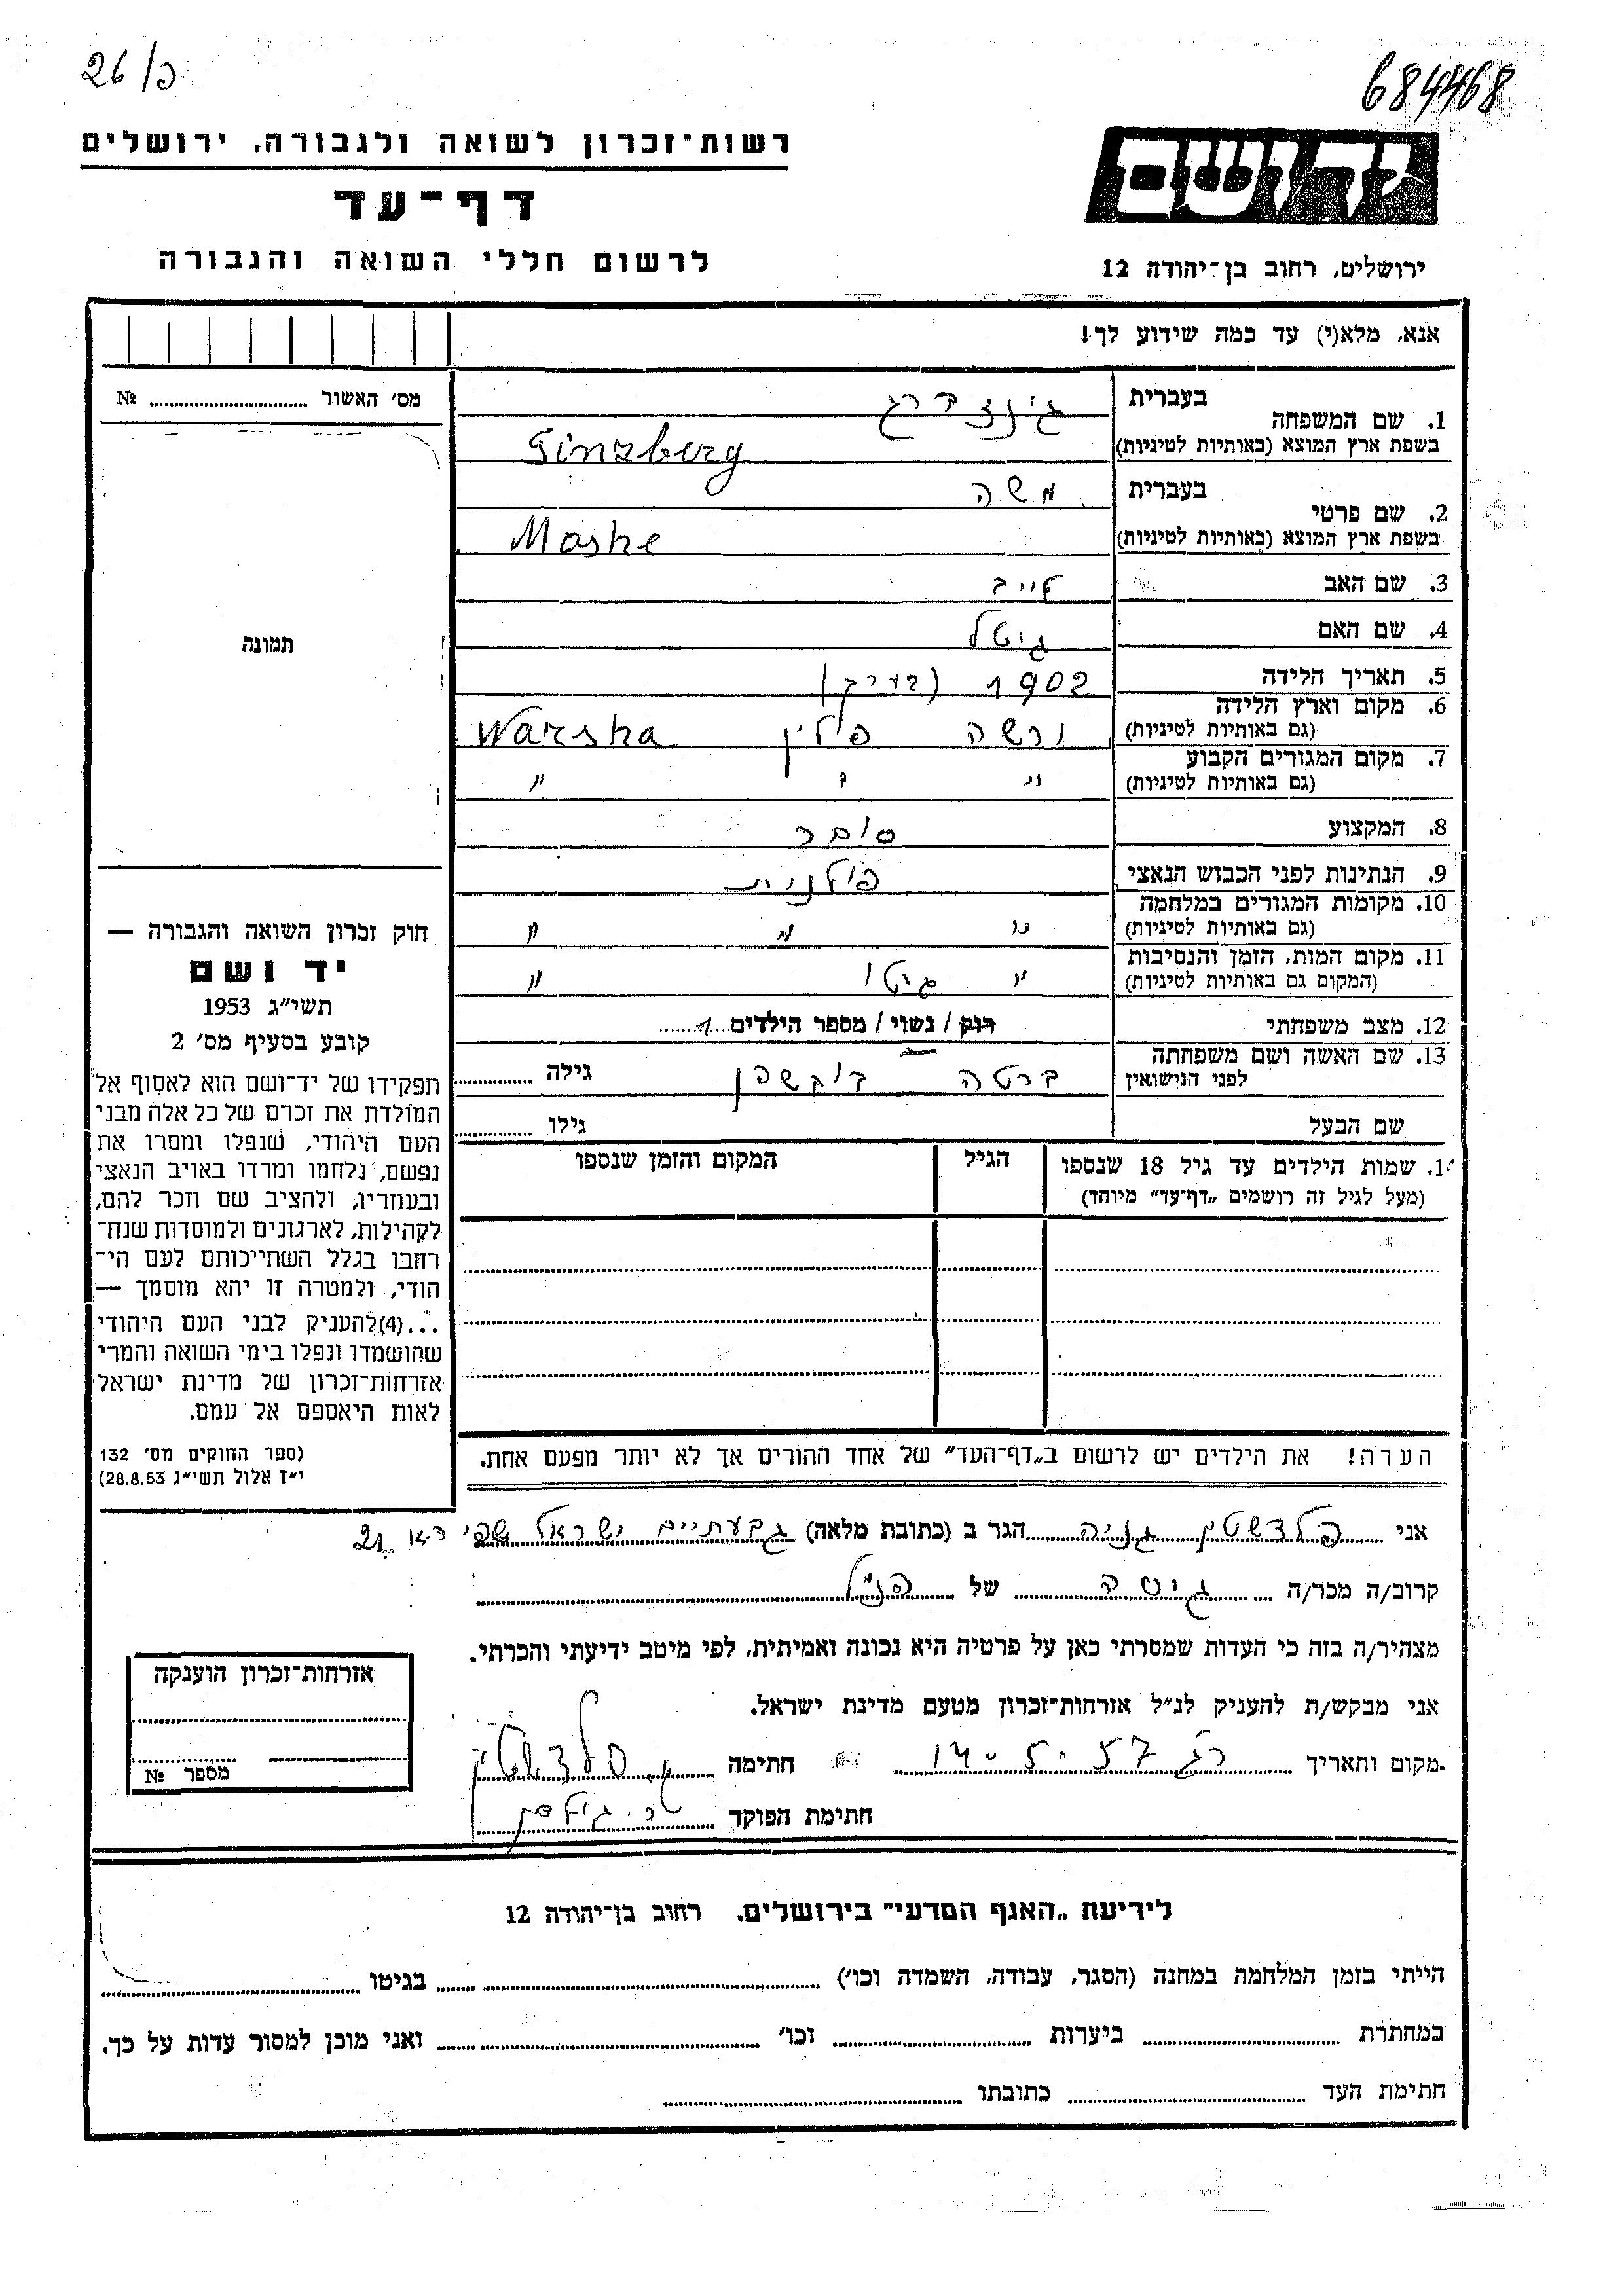 26/כ
684468
רשות־זכרון לשואה ולגבורה, ירושלים
דף־עד
לרשום חללי השואה והגבורה
יד ושם
ירושלים, רחוב בן־יהודה 12
אנא, מלא(י) עד כמה שידוע לך!
מס׳ האשור № 
תמונה
חוק זכרון השואה והגבורה —
יד ושם
תשי״ג 1953
קובע בסעיף מס׳ 2
תפקידו של יד־ושם הוא לאסוף אל
המולדת את זכרם של כל אלה מבני
העם היהודי, שנפלו ומסרו את
נפשם, נלחמו ומרדו באויב הנאצי
ובעוזריו, ולהציב שם וזכר להם,
לקהילות, לארגונים ולמוסדות שנח־
רחבו בגלל השתייכותם לעם הי־
הודי, ולמטרה זו יהא מוסמך —
...(4) להעניק לבני העם היהודי
שהושמדו ונפלו בימי השואה והמרי
אזרחות־זכרון של מדינת ישראל
לאות היאספם אל עמם.
(ספר החוקים מס׳ 132
י״ז אלול תשי״ג 28.8.53)
1. שם המשפחה בעברית גינזברג
בשפת ארץ המוצא (באותיות לטיניות) Ginzberg
2. שם פרטי בעברית משה
בשפת ארץ המוצא (באותיות לטיניות) Moshe
3. שם האב
4. שם האם גיטל
5. תאריך הלידה 1902 (בערך)
6. מקום וארץ הלידה (גם באותיות לטיניות) ורשה פולין Warsha
7. מקום המגורים הקבוע (גם באותיות לטיניות) " " "
8. המקצוע סוחר
9. הנתינות לפני הכבוש הנאצי פולנית
10. מקומות המגורים במלחמה (גם באותיות לטיניות) " " "
11. מקום המות, הזמן והנסיבות (המקום גם באותיות לטיניות) " גיטו "
12. מצב משפחתי רוק / נשוי / מספר הילדים 1
13. שם האשה ושם משפחתה לפני הנישואין ברטה גילה
שם הבעל גילו
14. שמות הילדים עד גיל 18 שנספו הגיל המקום והזמן שנספו
(מעל לגיל זה רושמים „דף־עד״ מיוחד)
הערה! את הילדים יש לרשום ב„דף־העד״ של אחד ההורים אך לא יותר מפעם אחת.
אני פלדשטין גניה הגר ב (כתובת מלאה) גבעתיים ישראל 21
קרוב/ה מכר/ה גיסה של הנ"ל
מצהיר/ה בזה כי העדות שמסרתי כאן על פרטיה היא נכונה ואמיתית, לפי מיטב ידיעתי והכרתי.
אני מבקש/ת להעניק לנ״ל אזרחות־זכרון מטעם מדינת ישראל.
מקום ותאריך ר"ג 14-5-57 חתימה ג. פלדשטין
חתימת הפוקד
אזרחות־זכרון הוענקה
מספר №
לידיעת „האגף המדעי״ בירושלים, רחוב בן־יהודה 12
הייתי בזמן המלחמה במחנה (הסגר, עבודה, השמדה וכו׳) בגיטו
במחתרת ביערות וכו׳ ואני מוכן למסור עדות על כך.
חתימת העד כתובתו